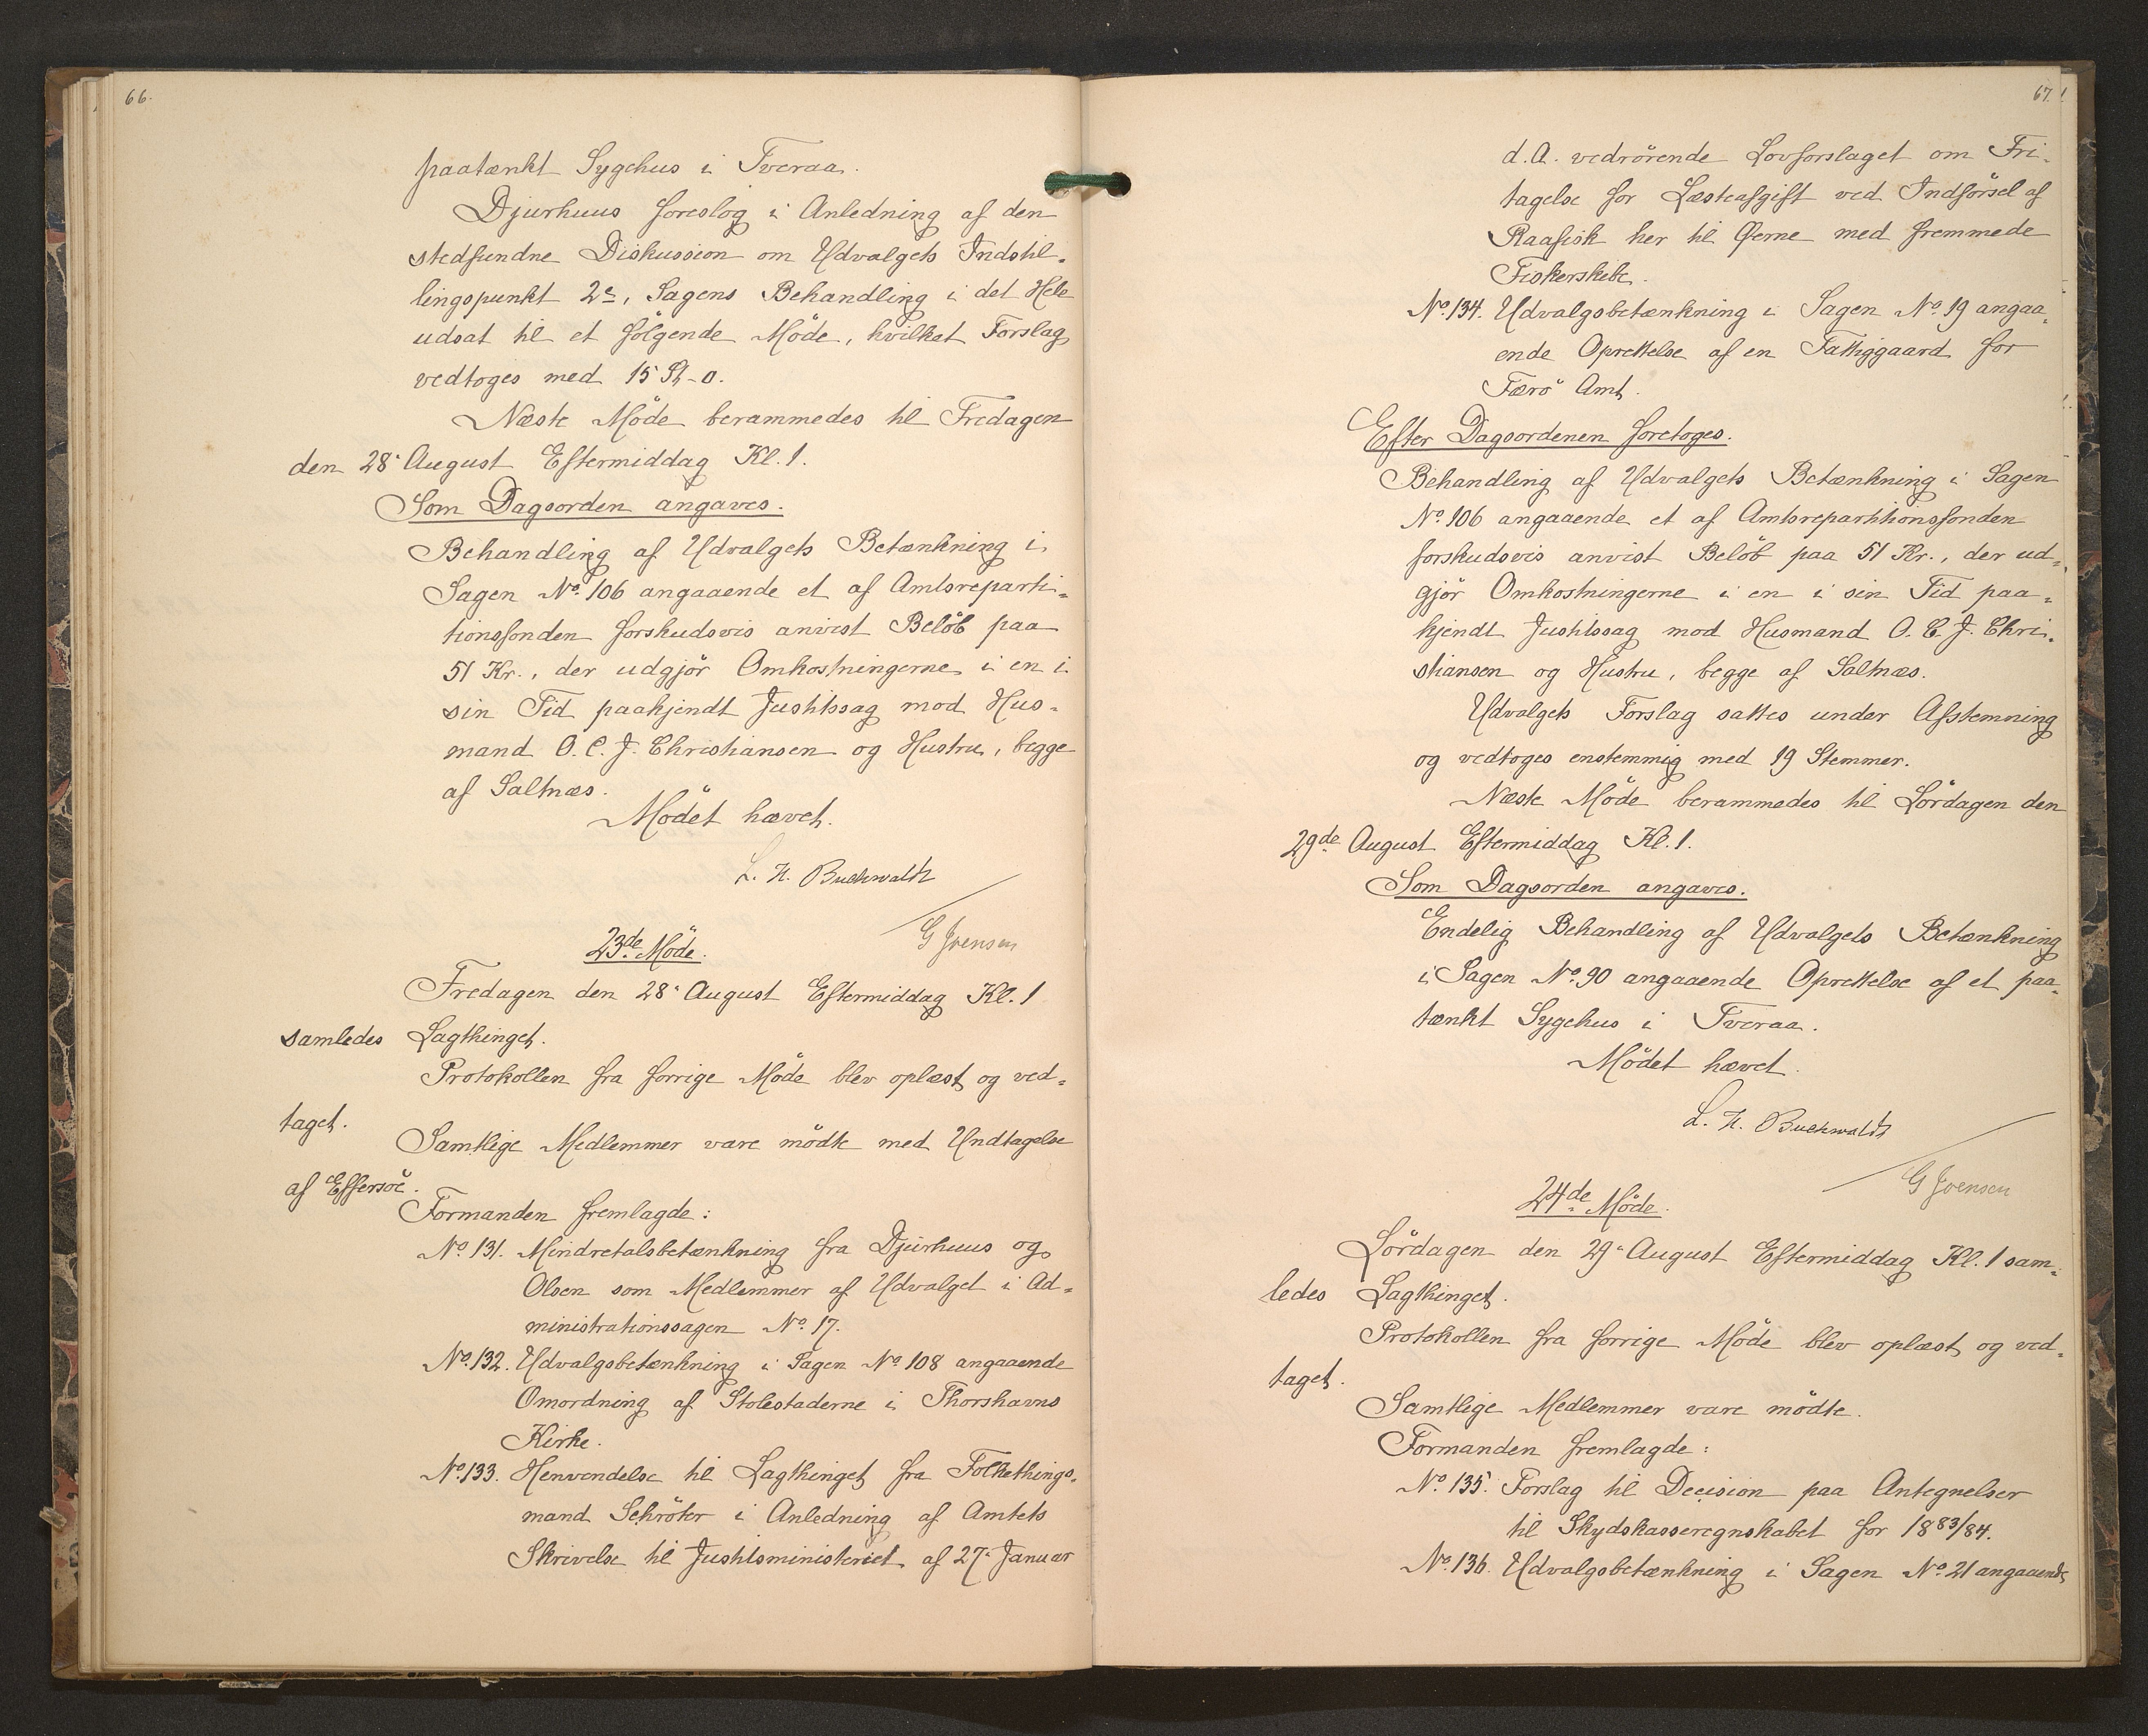 66.
paatænkt Sygehus i Tveraa.
Djurhuus foreslog i Anledning af den
stedfundne Diskussion om Udvalgets Indstil-
lingspunkt 2e, Sagens Behandling i det Hele
udsat til et følgende Møde, hvilket Forslag
vedtoges med 15 St-0.
Næste Møde berammedes til Fredagen
den 28. August Eftermiddag Kl. 1.
Som Dagsorden angaves.
Behandling af Udvalgets Betænkning i
Sagen No. 106 angaaende et af Amtsreparti-
tionsfonden forskudsvis anvist Beløb paa
51 Kr., der udgjør Omkostningerne i en i
sin Tid paakjendt Justitssag mod Hus-
mand O. C. J. Christiansen og Hustru, begge
af Saltnæs.
Mödet hævet.
L. H. Buchwaldt
G Joensen
23de Möde.
Fredagen den 28. August Eftermiddag Kl. 1
samledes Lagthinget.
Protokollen fra forrige Møde blev oplæst og ved-
taget.
Samtlige Medlemmer vare mødte med Undtagelse
af Effersøe.
Formanden fremlagde:
No. 131. Mindretalsbetænkning fra Djurhuus og
Olsen som Medlemmer af Udvalget i Ad-
ministrationssagen No. 17.
No. 132. Udvalgsbetænkning i Sagen No. 108 angaaende
Omordning af Stolestaderne i Thorshavns
Kirke.
No. 133. Henvendelse til Lagthinget fra Folkethings-
mand Schröter i Anledning af Amtets
Skrivelse til Justitsministeriet af 27. Januar
67.
d. A. vedrörende Lovforslaget om Fri-
tagelse for Læsteafgift ved Indförsel af
Raafisk her til Øerne med fremmede
Fiskerskibe.
No. 134. Udvalgsbetænkning i Sagen No. 19 angaa-
ende Oprettelse af en Fattiggaard for
Færö Amt.
Efter Dagsordenen foretoges.
Behandling af Udvalgets Betænkning i Sagen
No. 106 angaaende et af Amtsrepartitionsfonden
forskudsvis anvist Beløb paa 51 Kr., der ud-
gjör Omkostningerne i en i sin Tid paa-
kjendt Justitssag mod Husmand O. C. J. Chri-
stiansen og Hustru, begge af Saltnæs.
Udvalgets Forslag sattes under Afstemning
og vedtoges enstemmig med 19 Stemmer.
Næste Möde berammedes til Lördagen den
29de August Eftermiddag Kl. 1.
Som Dagsorden angaves.
Endelig Behandling af Udvalgets Betænkning
i Sagen No. 90 angaaende Oprettelse af et paa-
tænkt Sygehus i Tveraa.
Mödet hævet.
L. H. Buchwaldt
G Joensen
24de Möde.
Lördagen den 29. August Eftermiddag Kl. 1 sam-
ledes Lagthinget.
Protokollen fra forrige Möde blev oplæst og ved-
taget.
Samtlige Medlemmer vare mödte.
Formanden fremlagde:
No. 135. Forslag til Decision paa Antegnelser
til Skydskasseregnskabet for 1883/84.
No. 136. Udvalgsbetænkning i Sagen No. 21 angaaende